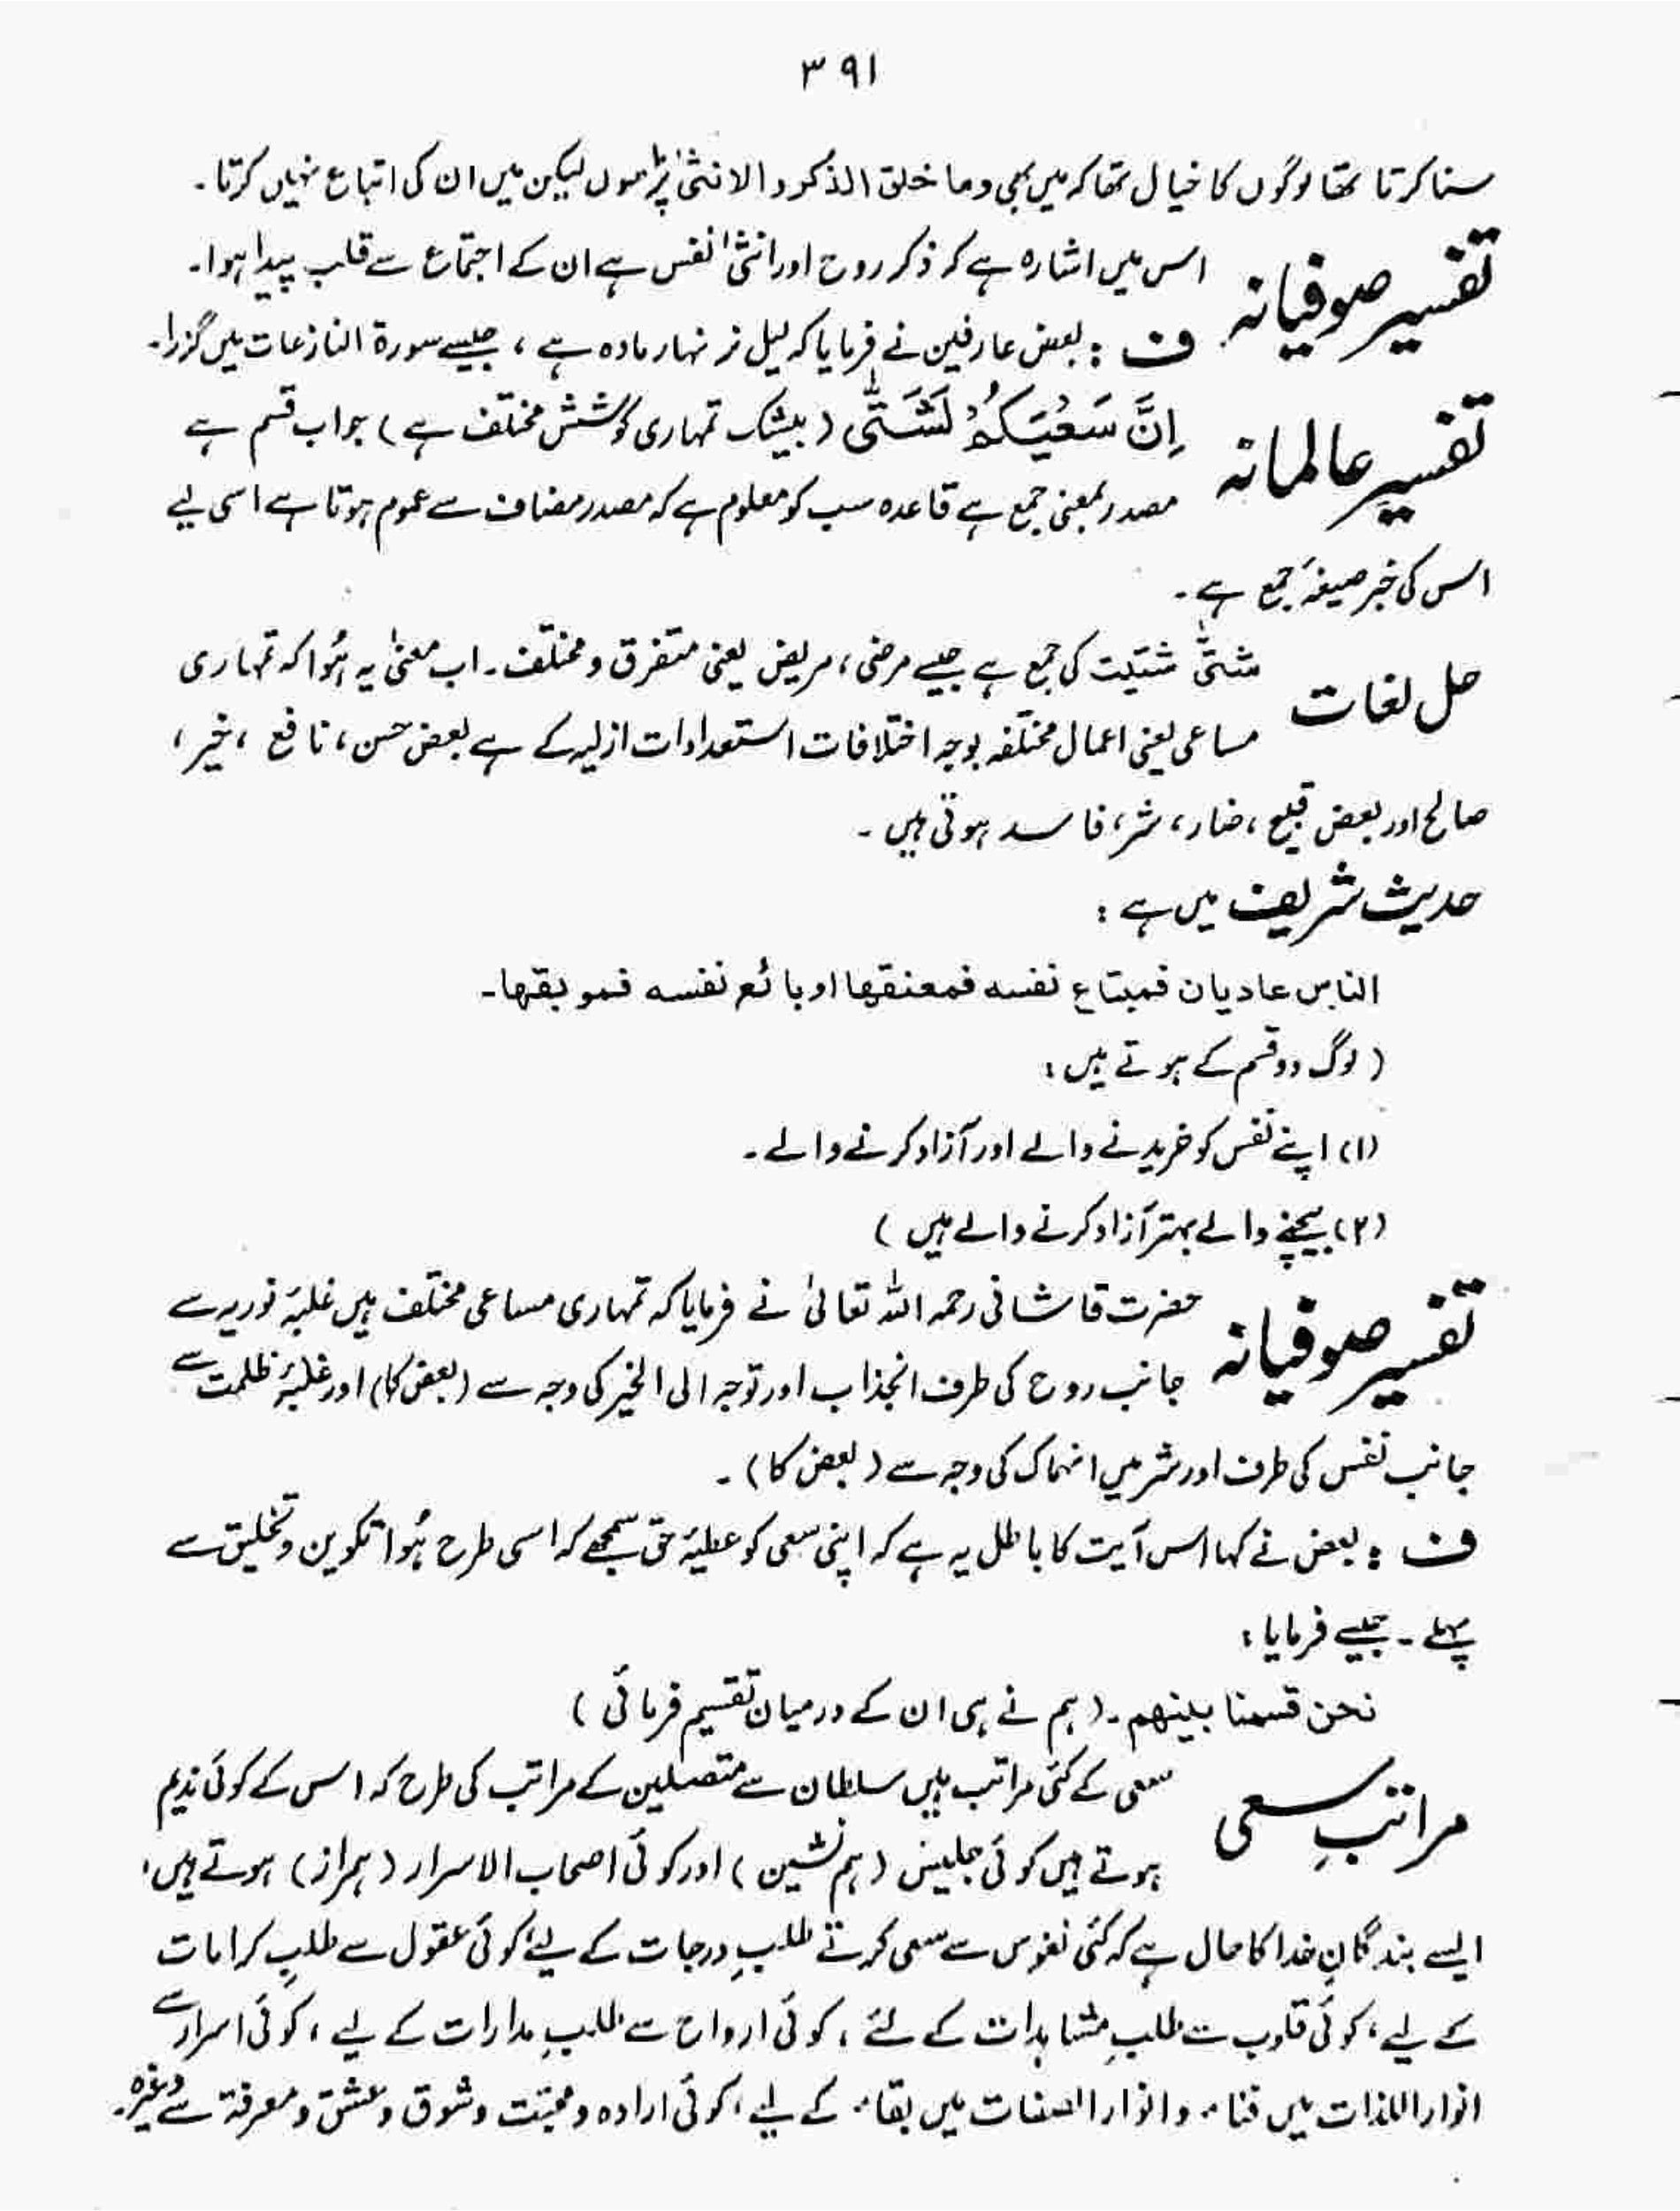 ۳۹۱
سنا کرتا تھا لوگوں کا خیال تھا کہ میں بھی وما خلق الذکر والانثیٰ پڑھوں لیکن میں ان کی اتباع نہیں کرتا۔
تفسیر صوفیانہ اس میں اشارہ ہے کہ ذکر روح اور انثیٰ نفس ہے ان کے اجتماع سے قلب پیدا ہوا۔
ف : بعض عارفین نے فرمایا کہ لیل نر نہار مادہ ہے ، جیسے سورۃ النازعات میں گزرا۔
تفسیر عالمانہ اِنَّ سَعْیَکُمْ لَشَتّٰی (بیشک تمہاری کوشش مختلف ہے) جواب قسم ہے
مصدر بمعنی جمع ہے قاعدہ سب کو معلوم ہے کہ مصدر مضاف سے عموم ہوتا ہے اسی لیے
اس کی خبر صیغۂ جمع ہے ۔
حل لغات شتّٰی شتیت کی جمع ہے جیسے مرضی ، مریض یعنی متفرق و مختلف ۔ اب معنیٰ یہ ہُوا کہ تمہاری
مساعی یعنی اعمال مختلفہ بوجہ اختلافات استعدادات ازلیہ کے ہے بعض حسن ، نافع ، خیر ،
صالح اور بعض قبیح ، ضار ، شر ، فاسد ہوتی ہیں ۔
حدیث شریف میں ہے :
الناس عادیان فمبتاع نفسه فمعتقها او بائع نفسه فموبقها۔
( لوگ دو قسم کے ہوتے ہیں :
(۱) اپنے نفس کو خریدنے والے اور آزاد کرنے والے ۔
(۲) بیچنے والے بہتر آزاد کرنے والے ہیں )
تفسیر صوفیانہ حضرت قاشانی رحمہ اللہ تعالیٰ نے فرمایا کہ تمہاری مساعی مختلف ہیں غلبۂ نوریہ سے
جانب روح کی طرف انجذاب اور توجہ الی الخیر کی وجہ سے (بعض کا) اور غلبۂ ظلمت سے
جانب نفس کی طرف اور شر میں انہماک کی وجہ سے (بعض کا) ۔
ف : بعض نے کہا اس آیت کا باطل یہ ہے کہ اپنی سعی کو عطیۂ حق سمجھے کہ اسی طرح ہُوا تکوین و تخلیق سے
پہلے ۔ جیسے فرمایا :
نحن قسمنا بینهم ۔ (ہم نے ہی ان کے درمیان تقسیم فرمائی )
مراتبِ سعی سعی کے کئی مراتب ہیں سلطان سے متصلین کے مراتب کی طرح کہ اس کے کوئی ندیم
ہوتے ہیں کوئی جلیس (ہم نشین) اور کوئی اصحاب الاسرار (ہمراز) ہوتے ہیں ،
ایسے بندگانِ خدا کا حال ہے کہ کئی نفوس سے سعی کرتے طلبِ درجات کے لیے ، کوئی عقول سے طلبِ کرامات
کے لیے ، کوئی قلوب سے طلبِ مشاہدات کے لئے ، کوئی ارواح سے طلبِ مدارات کے لیے ، کوئی اسرار سے
انوار اللذات میں فناء و انوار الصفات میں بقاء کے لیے ، کوئی ارادہ و محبّت و شوق و عشق و معرفۃ سے وغیرہ۔